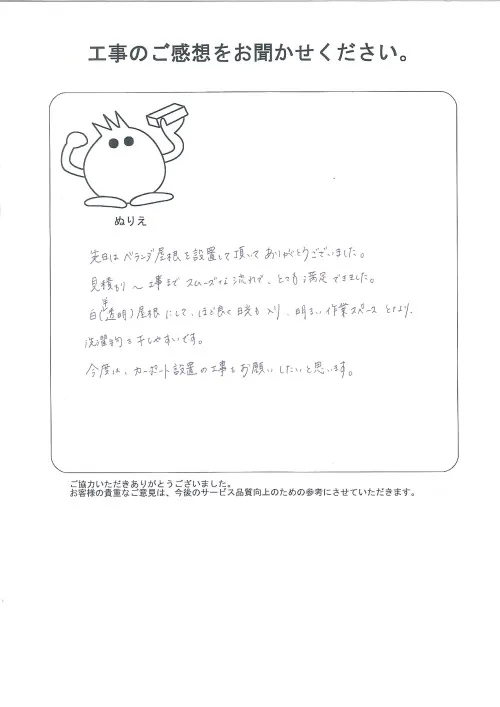 工事のご感想をお聞かせください。
ぬりえ
先日はベランダ屋根を設置して頂いてありがとうございました。
見積もり〜工事までスムーズな流れで、とても満足できました。
白(半透明)屋根にして、ほど良く日光も入り、明るい作業スペースとなり、
洗濯物を干しやすいです。
今度は、カーポート設置の工事もお願いしたいと思います。
ご協力いただきありがとうございました。
お客様の貴重なご意見は、今後のサービス品質向上のための参考にさせていただきます。